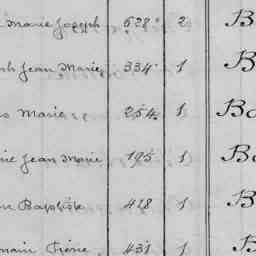 Marie Joseph 528 2 B
Jean Marie 334 1 B
Marie 254 1 Bo
Jean Marie 195 1 Bo
Baptiste 428 1 B
Pierre 431 1 B